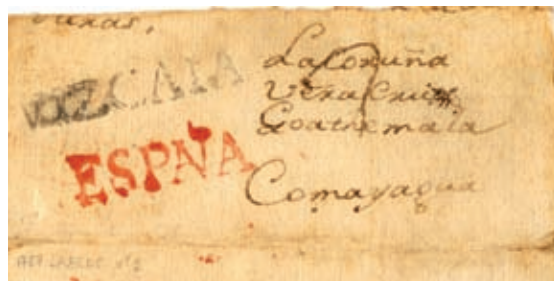 VIZCAIA
ESPAÑA
La Coruña
Vera Cruz
Goathemala
Comayagua